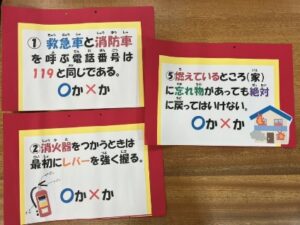 ① 救急車と消防車
を呼ぶ電話番号は
119と同じである。
○か×か
②消火器をつかうときは
最初にレバーを強く握る。
○か×か
⑤燃えているところ(家)
に忘れ物があっても絶対
に戻ってはいけない。
○か×か